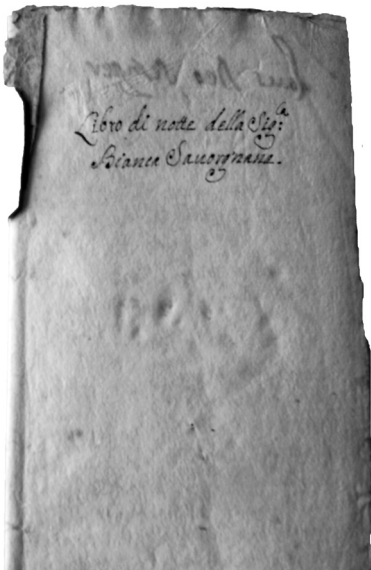 Libro di notte della Sig.ra
Bianca Sauorgnane.